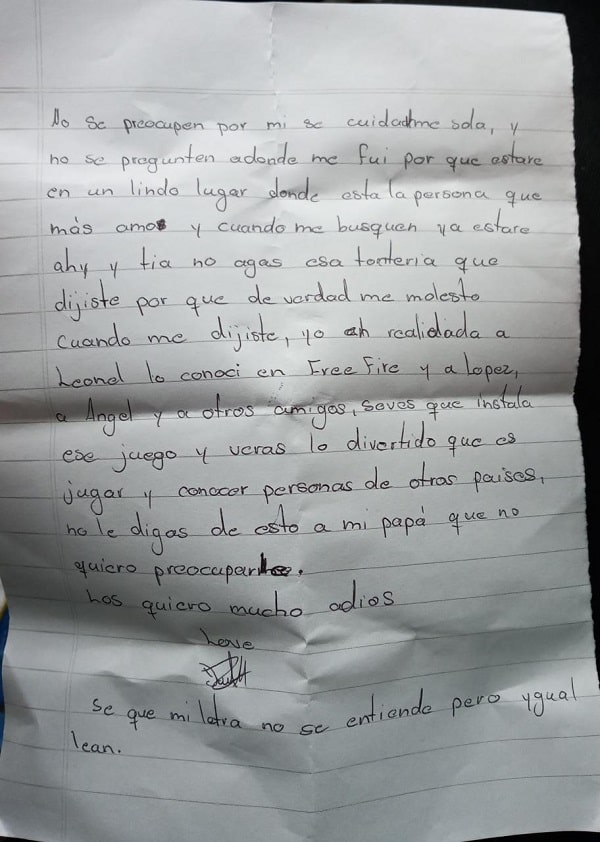 No se preocupen por mi se cuidadme sola, y
no se pregunten adonde me fui por que estare
en un lindo lugar donde esta la persona que
más amo y cuando me busquen ya estare
ahy y tia no agas esa tonteria que
dijiste por que de verdad me molesto
cuando me dijiste, yo realidada a
Leonel lo conoci en Free Fire y a Lopez,
a Angel y a otros amigos, seves que instala
ese juego y veras lo divertido que es
jugar y conocer personas de otras paises,
no le digas de esto a mi papá que no
quiero preocuparle.
Los quiero mucho adios
Se que mi latra no se entiende pero ygual
lean.